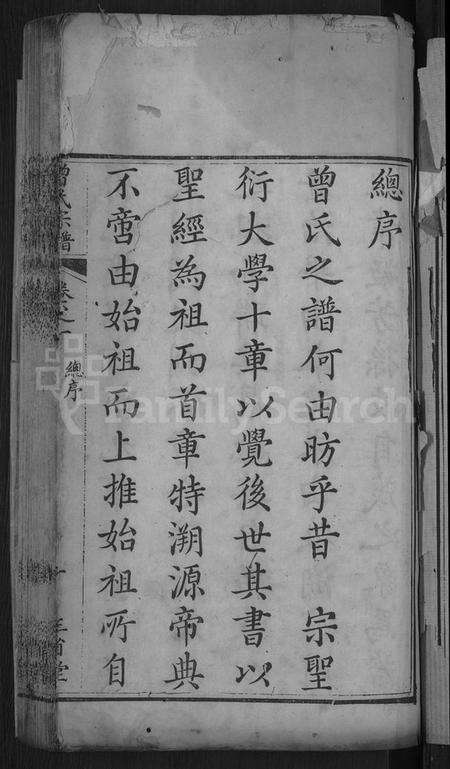 總序
曾氏之譜何由昉乎昔 宗聖
衍大學十章以覺後世其書以
聖經為祖而首章特溯源帝典
不啻由始祖而上推始祖所自
曾氏宗譜
卷之一
總序
FamilySearch